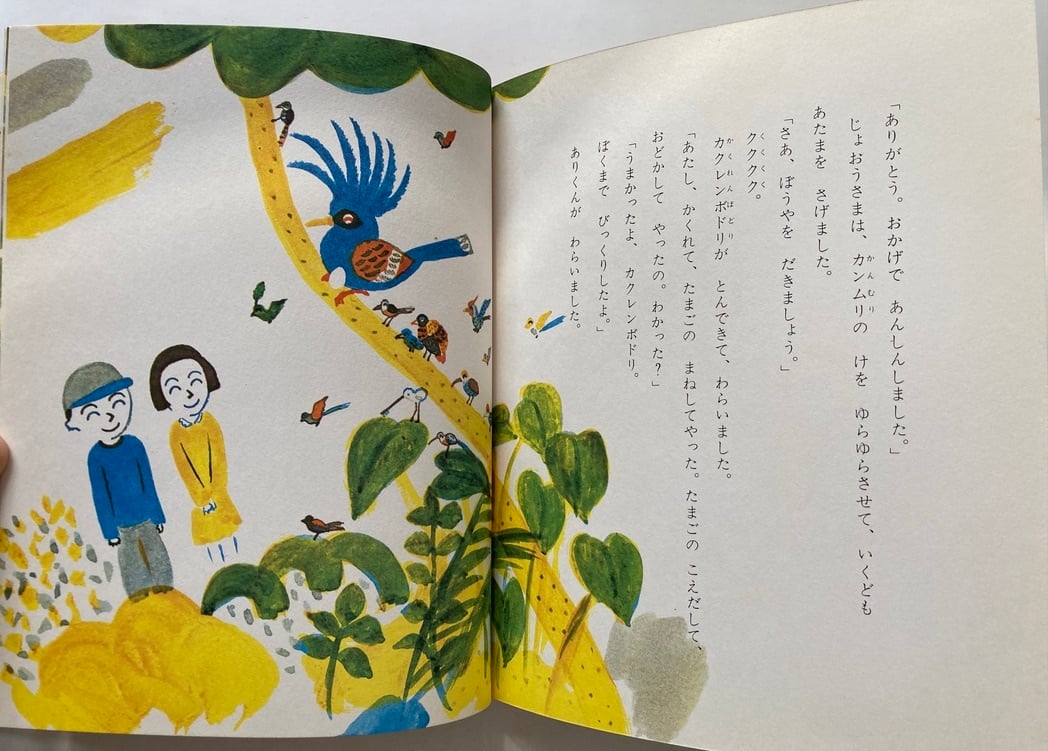 「ありがとう。おかげで　あんしんしました。」
じょおうさまは、カンムリの　けを　ゆらゆらさせて、いくども
あたまを　さげました。
「さあ、ぼうやを　だきましょう。」
ククククク。
カクレンボドリが　とんできて、わらいました。
「あたし、かくれて、たまごの　まねしてやった。たまごの　こえだして、
おどかして　やったの。わかった？」
「うまかったよ、カクレンボドリ。
ぼくまで　びっくりしたよ。」
ありくんが　わらいました。